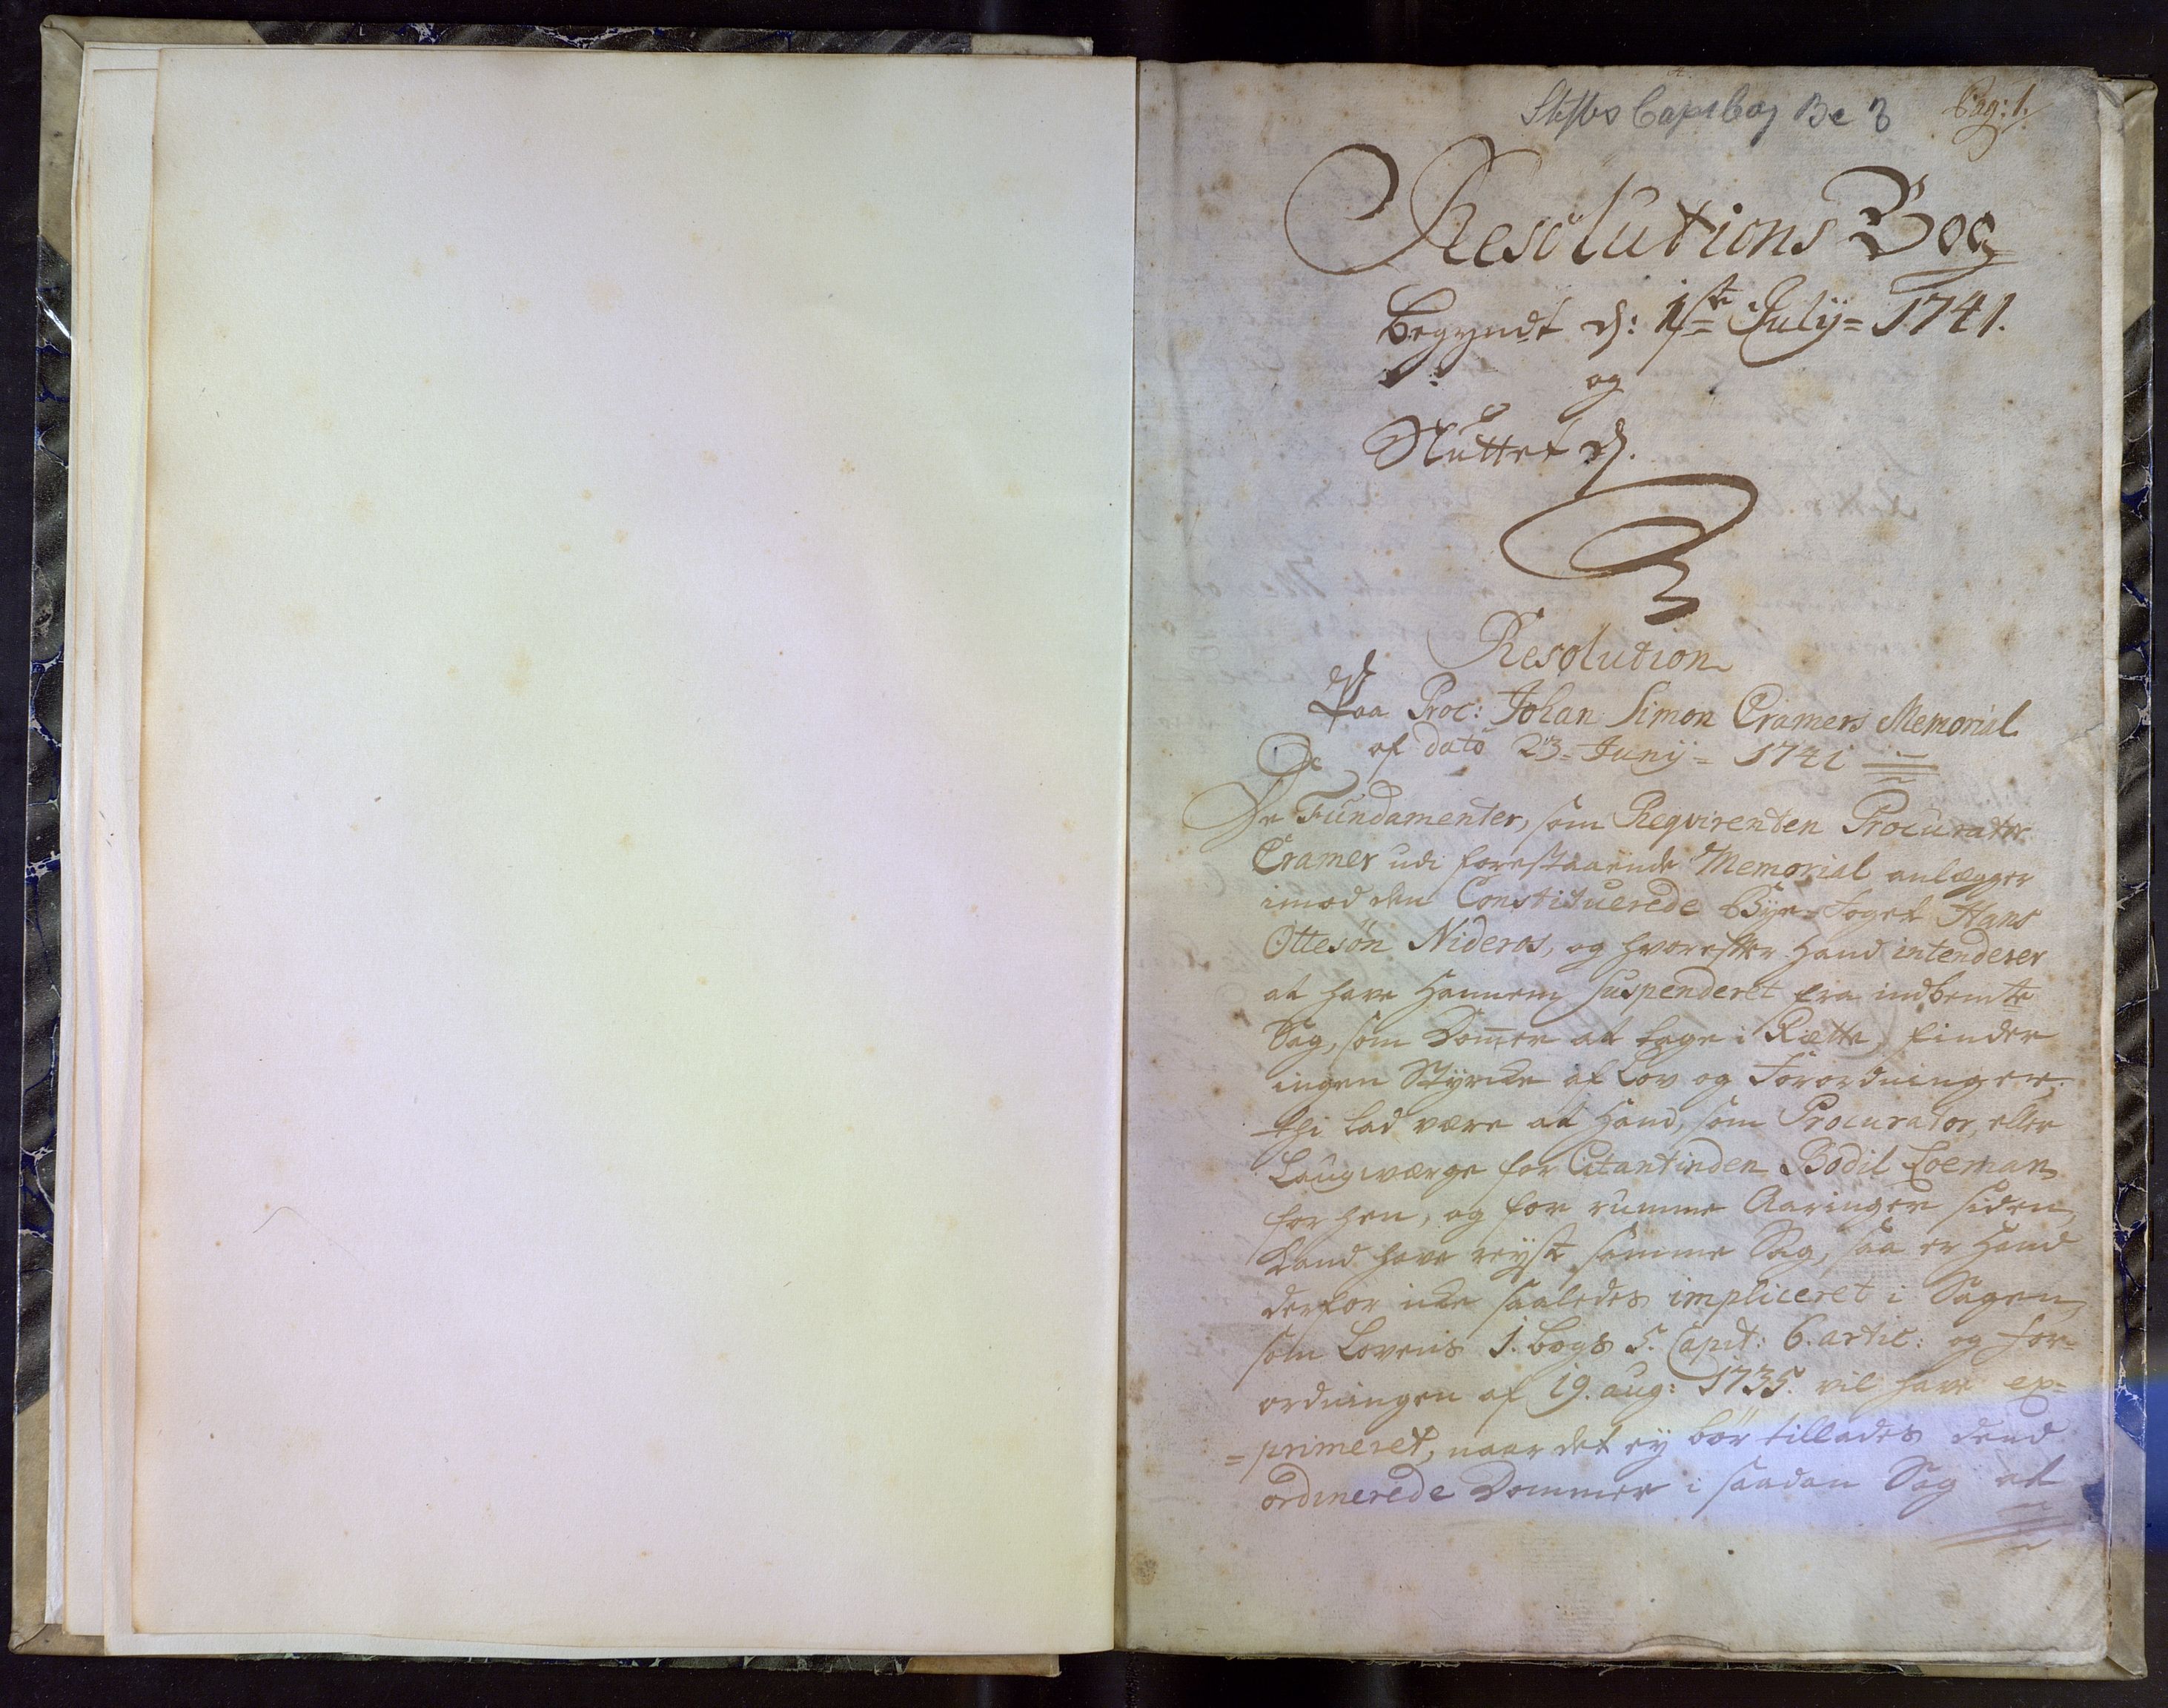 Pag: 1.
Resolutions Bog
Begyndt d: 1ste Julij = 1741.
og
Sluttet d.
Resolution
Paa Proc: Johan Simon Cramers Memorial
af dato 23 = Junij = 1741
De Fundamenter, som Reqvirenten Procurator
Cramer udi forestaaende Memorial anlægger
imod den Constituerede Bye-Foget Hans
Ottesøn Nideros, og hvorefter Hand intenderer
at have Hannem suspenderet fra indbemte
Sag, som Dommer at tage i Rætte, finder
ingen Styrcke af Lov og Forordninger,
thi lad være at Hand, som Procurator, eller
Laugværge for Citantinden Bodil Loeman
for hen, og for rumme Aaringer siden,
kand have reyst samme Sag, saa er Hand
derfor icke saaledes impliceret i Sagen,
som Lovens 1. bogs 5. Capit: 6. artic: og for-
ordningen af 19. aug: 1735. vil have ex-
=primeret, naar det ey bør tillades dend
ordinerede Dommer i saadan Sag at